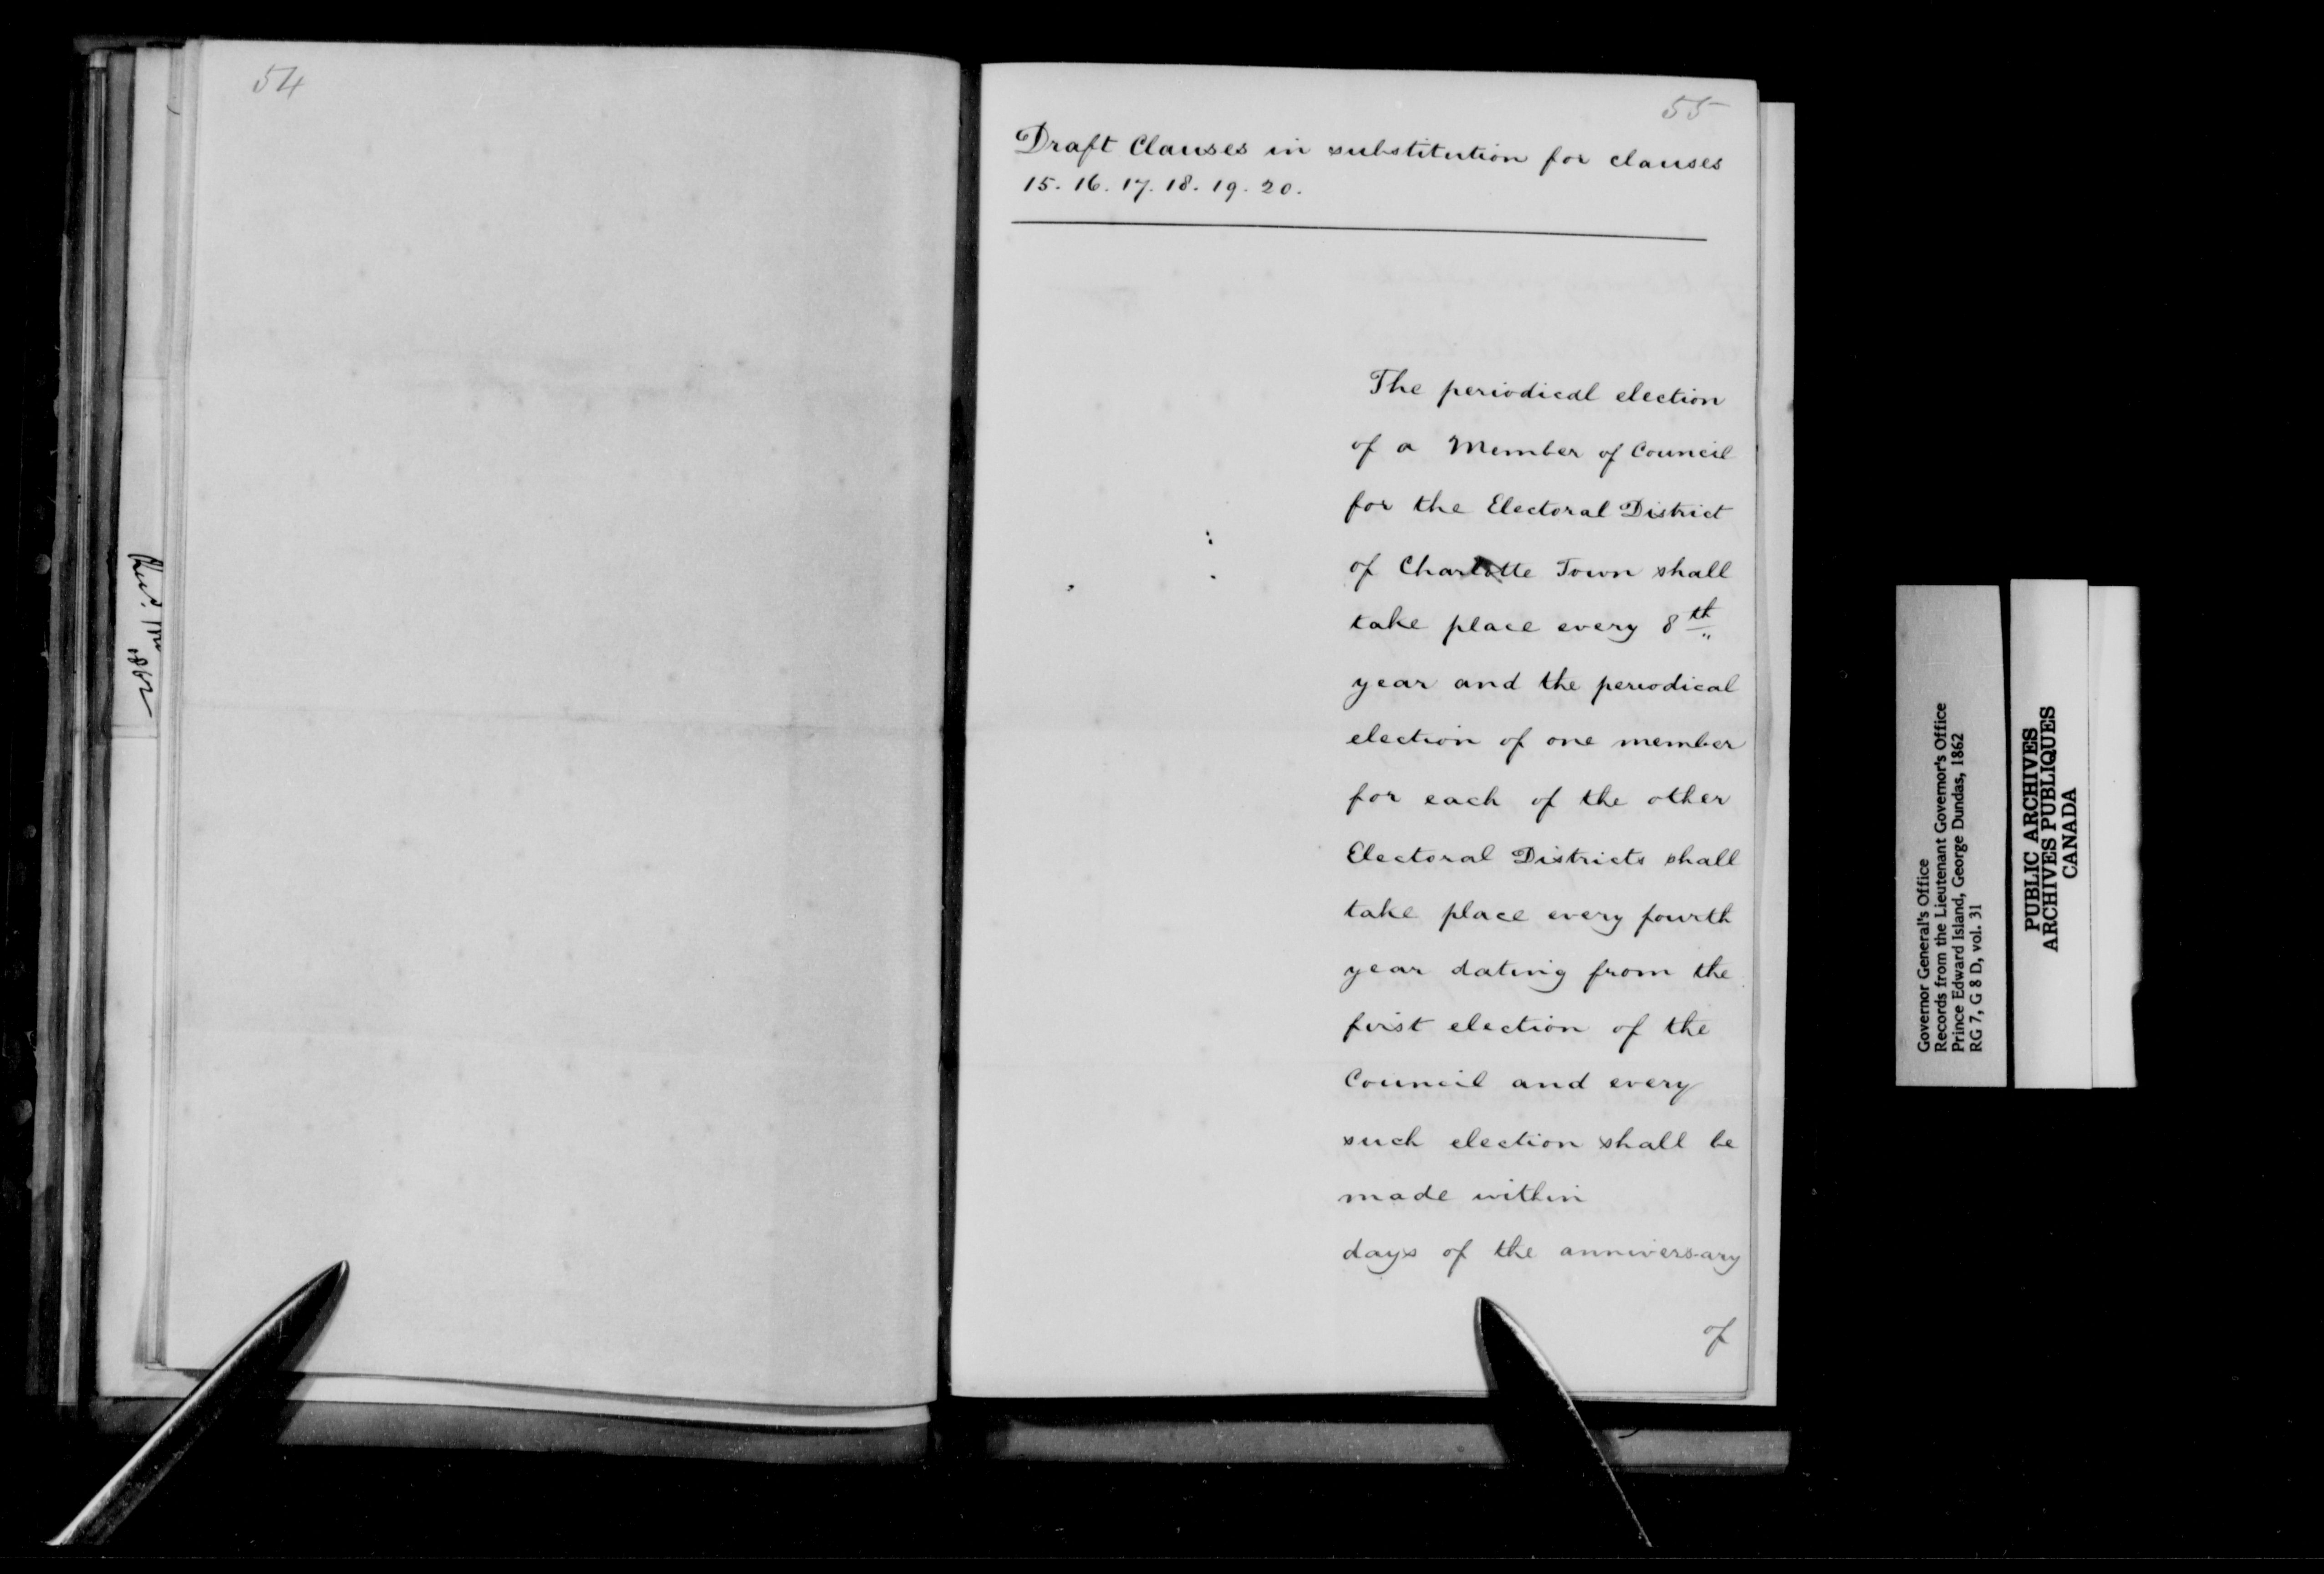 54
55
Draft Clauses in substitution for clauses
15. 16. 17. 18. 19. 20.
The periodical election
of a Member of Council
for the Electoral District
of Charlotte Town shall
take place every 8th
year and the periodical
election of one member
for each of the other
Electoral Districts shall
take place every fourth
year dating from the
first election of the
Council and every
such election shall be
made within
days of the anniversary
of
Governor General's Office
Records from the Lieutenant Governor's Office
Prince Edward Island, George Dundas, 1862
RG 7, G 8 D, vol. 31
PUBLIC ARCHIVES
ARCHIVES PUBLIQUES
CANADA